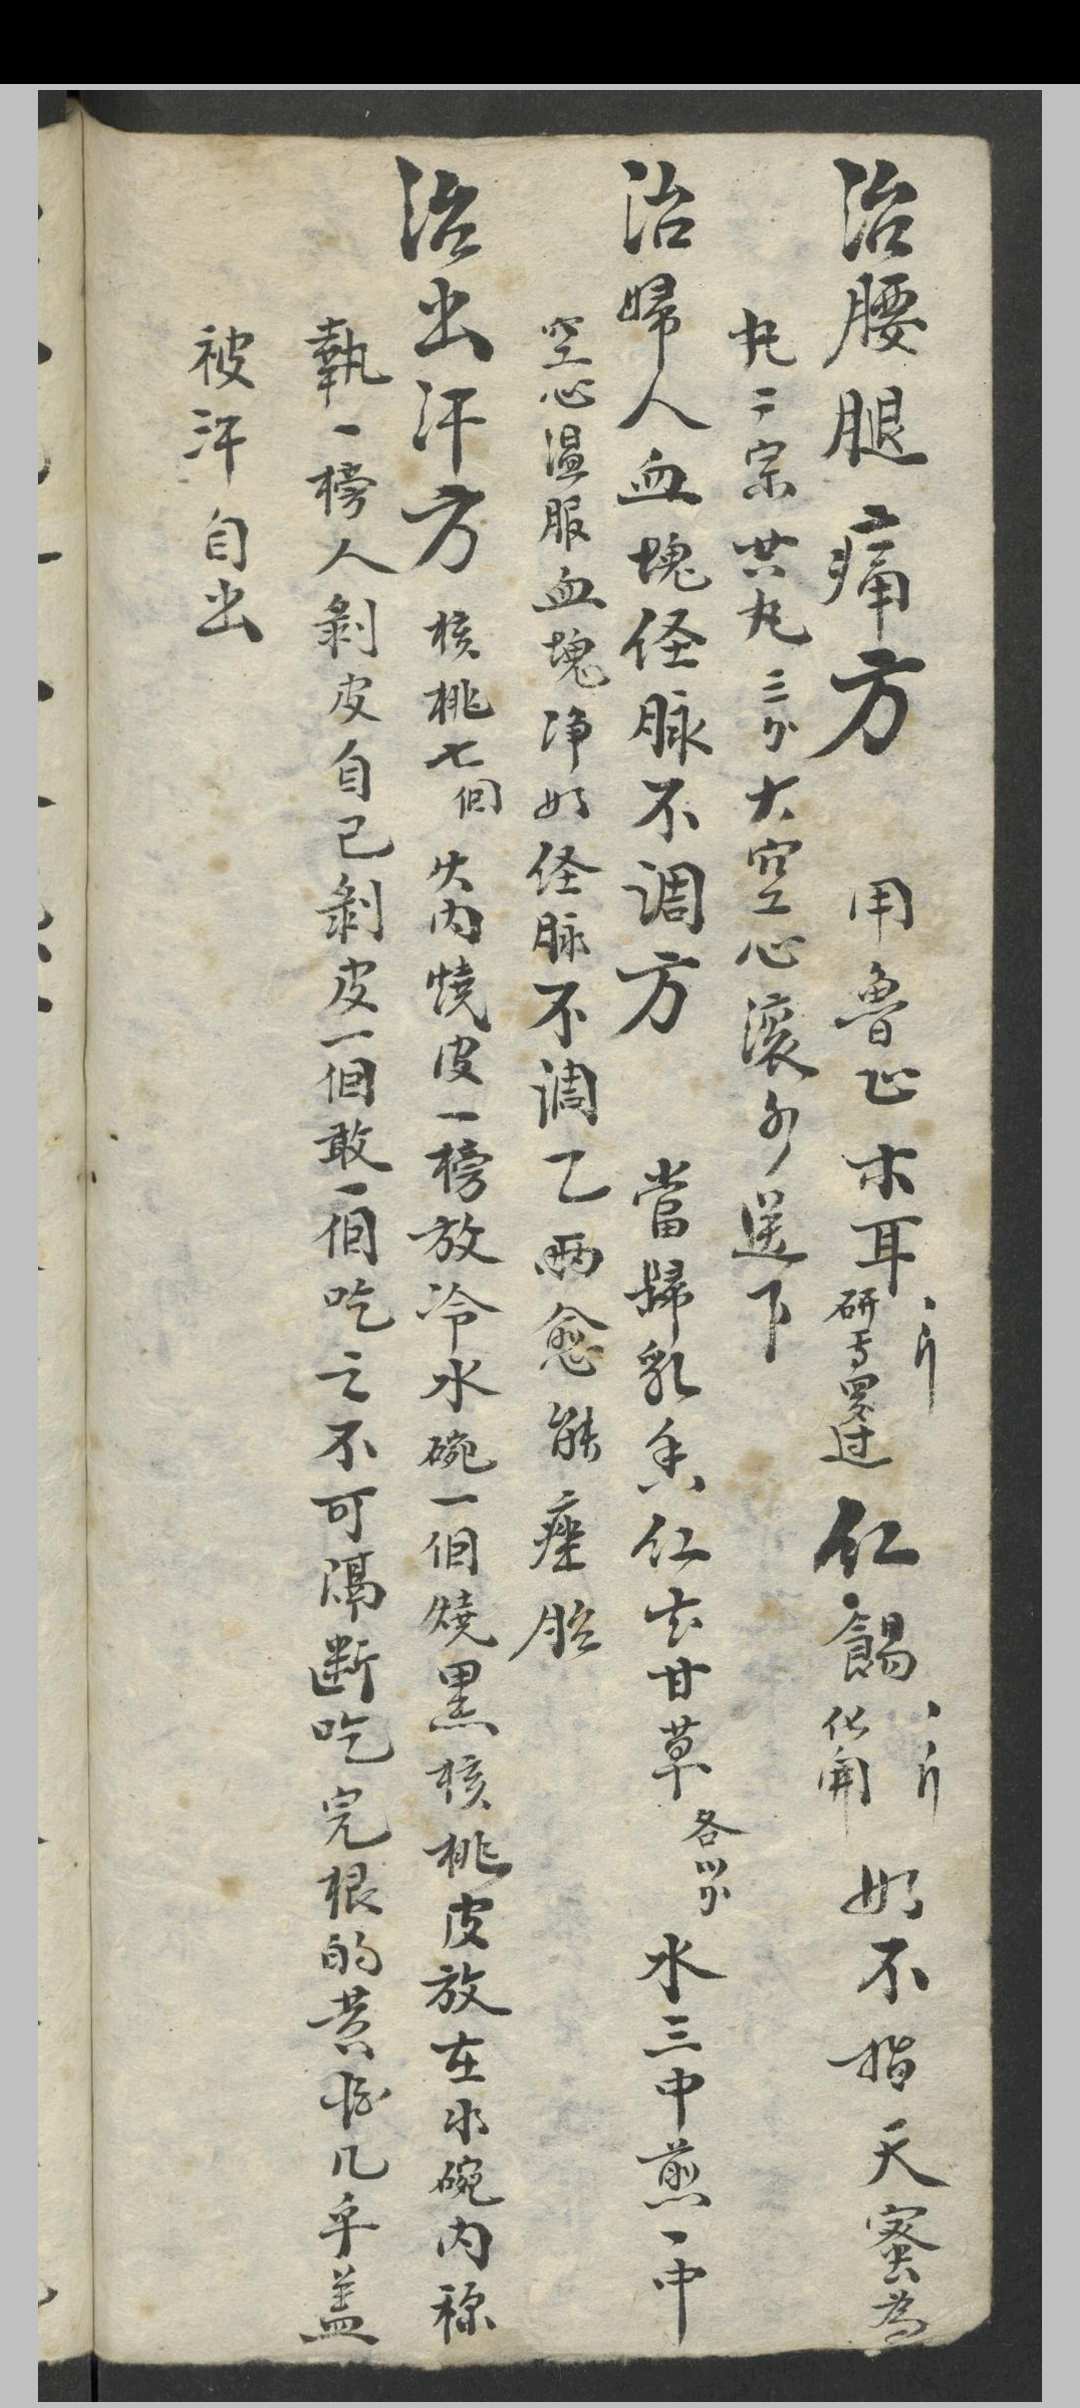 治腰腿痛方 用魯山木耳一斤研書羅过 仁餳一斤化開 如不指天蜜為
丸二宗共丸三分大空心滾水送下
治婦人血塊经脉不调方 當歸乳香仁花甘草各三分水三中煎一中
空心温服血塊净如经脉不调乙两愈能
治出汗方 核桃七個 火内燒皮一榜放冷水碗一個燒黑核桃皮放在水碗内
執一榜人剝皮自己剝皮一個敢一個吃之不可隔断吃完根的黄几乎蓋
被汗自出